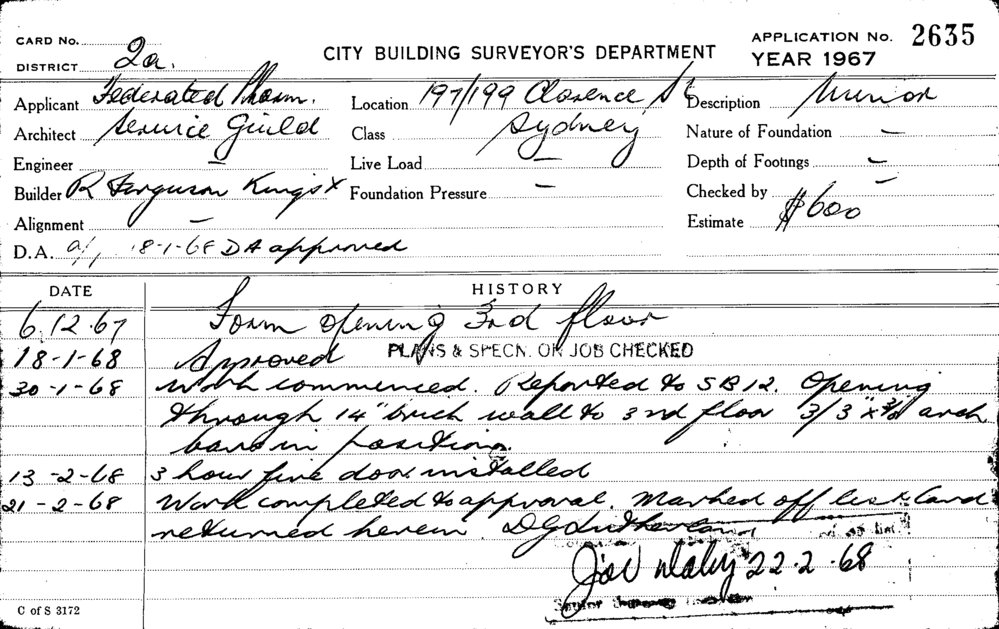 CARD No. APPLICATION No. 2635
DISTRICT 2a. CITY BUILDING SURVEYOR'S DEPARTMENT YEAR 1967
Applicant Federated Pharm. Location 197/199 Clarence St Description Minor
Architect Service Guild Class Sydney Nature of Foundation –
Engineer – Live Load – Depth of Footings –
Builder R Ferguson Kings X Foundation Pressure – Checked by –
Alignment – Estimate $600
D.A. a/, 18-1-68 DA approved
DATE HISTORY
6.12.67 Form opening 3rd floor
18-1-68 Approved PLANS & SPECN. OK JOB CHECKED
30-1-68 Work commenced. Reported to SB12. Opening
through 14" brick wall to 3rd floor 3/3"x3/8 arch
bars in position.
13-2-68 3 hour fire door installed
21-2-68 Work completed to approval. Marked off list & card
returned herein
22.2.68
Senior
C of S 3172